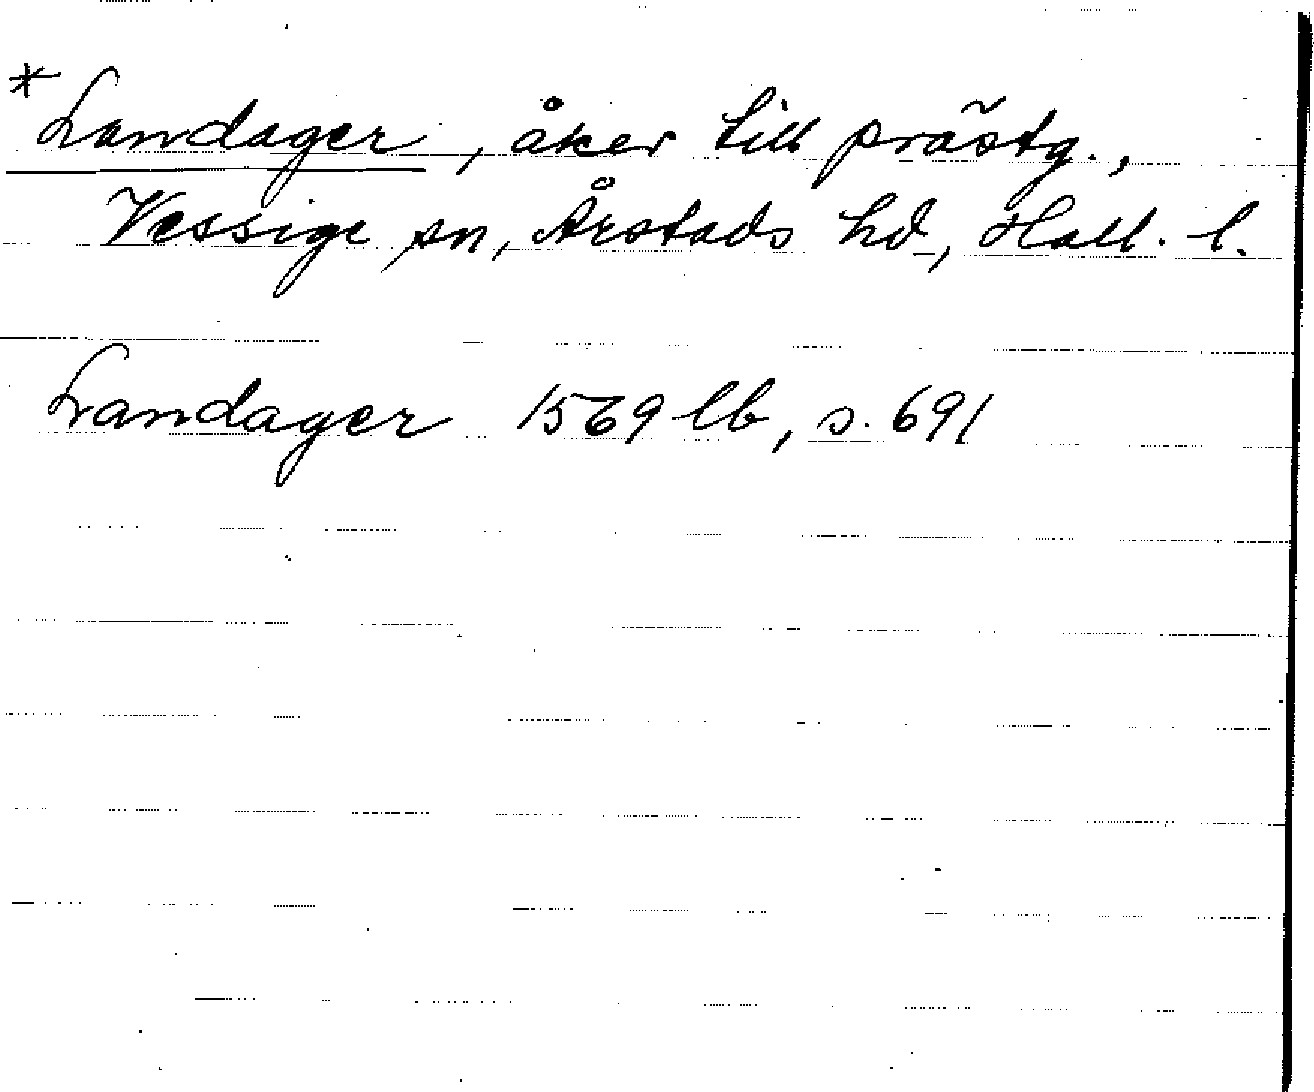 * Landager, åker till prästg.,
Vessige sn, Årstads hd, Hall. l.
Landager 1569 lb, s. 691